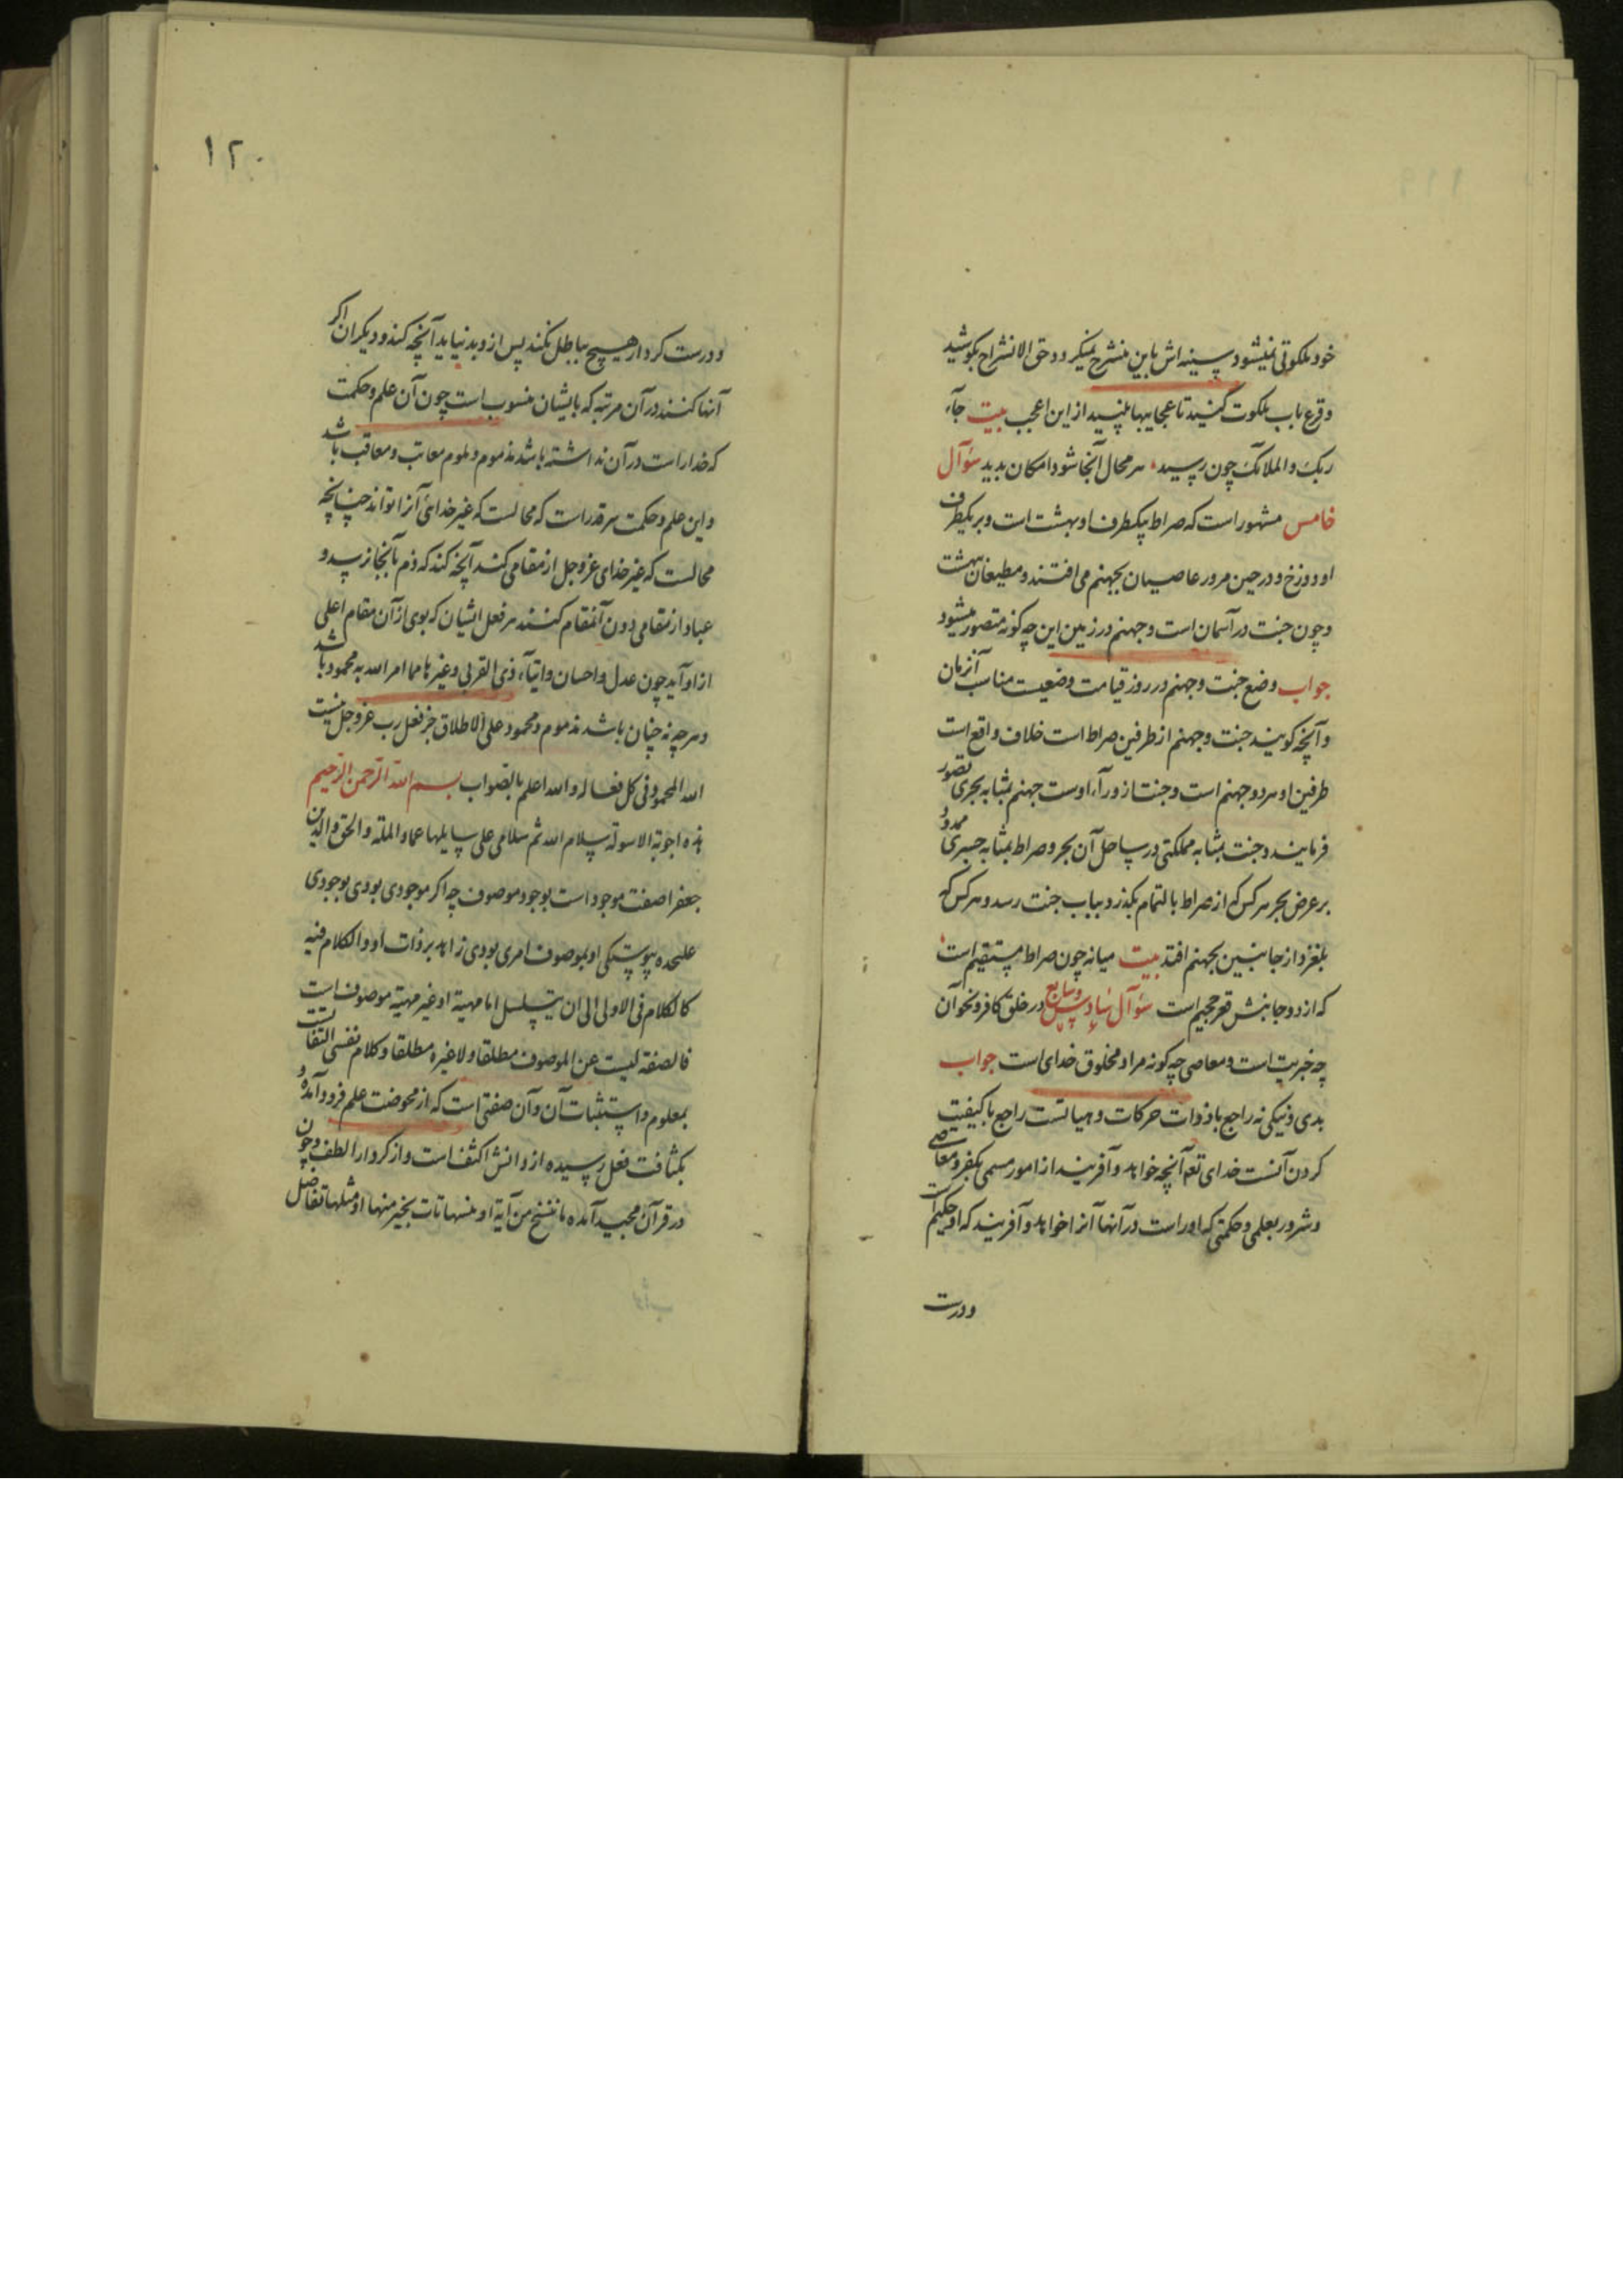 خود ملکوتی نمیشود سینه‌اش باین منشرح نمیکردد حق الانشراح بکوشید
و قرع باب ملکوت کنید تا عجایبها بینید از این اعجب بیت جاء
ربک و الملائک چون رسید هر محال آنجا شود امکان بدید سؤال
خامس مشهور است که صراط یکطرف او بهشت است و بر یکطرف
او دوزخ و در حین مرور عاصیان بجهنم می افتند و مطیعان بهشت
و چون جنت در آسمان است و جهنم در زمین این چه کونه متصور میشود
جواب وضع جنت و جهنم در روز قیامت وضعیست مناسب آنزمان
و آنچه کویند جنت و جهنم از طرفین صراط است خلاف واقع است
طرفین او هر دو جهنم است و جنت از وراء اوست جهنم بمثابه بحری تصور
فرمایند و جنت بمثابه مملکتی در ساحل آن بحر و صراط بمثابه جسری ممدود
بر عرض بحر هر کس که از صراط بالتمام بکذرد بباب جنت رسد و هر کس که
بلغزد از جانبین بجهنم افتد بیت میانه چون صراط مستقیم است
که از دو جانبش قعر جحیم است سؤال سادس و سابع در خلق کافر و نحو آن
چه خیریت است و معاصی چه کونه مراد و مخلوق خدای است جواب
بدی و نیکی نه راجع با ذوات حرکات و هیاتست راجع با کیفیت
کردن آنست خدای تعه آنچه خواهد و آفریند از امور مسمی بکفر و معاصی
و شرور بعلمی و حکمتی که او راست در آنها آنرا خواهد و آفریند که او حکیم است
و درست
۱۲۰
و درست کردار هیچ بباطل نکند پس از و بد نیاید آنچه کند و دیکران اکر
آنها کنند در آن مرتبه که بایشان منسوب است چون آن علم و حکمت
که خدا راست در آن نداشته باشد مذموم و ملوم معاتب و معاقب باشد
و این علم و حکمت سر قدر است که محالست که غیر خدائی آنرا تواند چنانچه
محالست که غیر خدای عز و جل از مقامی کند آنچه کند که ذم بآنجا نرسد و
عباد از مقامی دون آنمقام کنند هر فعل ایشان که بوی از آن مقام اعلی
از او آید چون عدل و احسان و ایتاء ذی القربی و غیرها مما امر الله به محمود باشد
و هر چه نه چنان باشد مذموم و محمود علی الاطلاق جز فعل رب عز و جل نیست
الله المحمود فی کل فعاله و الله اعلم بالصواب بسم الله الرحمن الرحیم
هذه اجوبة الاسولة سلام الله ثم سلامی علی سایلها عماد الملة و الحق و الدین
جعفرا صفت موجود است بوجود موصوف چه اکر موجودی بودی بوجودی
علیحده پیوستکی او بموصوف امری بودی زاید بر ذات او و الکلام فیه
کالکلام فی الاولی الی ان یتسلسل اما مهیة او غیر مهیة موصوف است
فالصفة لیست عین الموصوف مطلقا و لا غیره مطلقا و کلام نفسی التفاتست
بمعلوم و استثبات آن و آن صفتی است که از محوضت علم فرود آمده و
بکثافت فعل رسیده از دانش اکثف است و از کردار الطف و چون
در قرآن مجید آمده ما ننسخ من آیة او ننسها نات بخیر منها او مثلها تفاضل